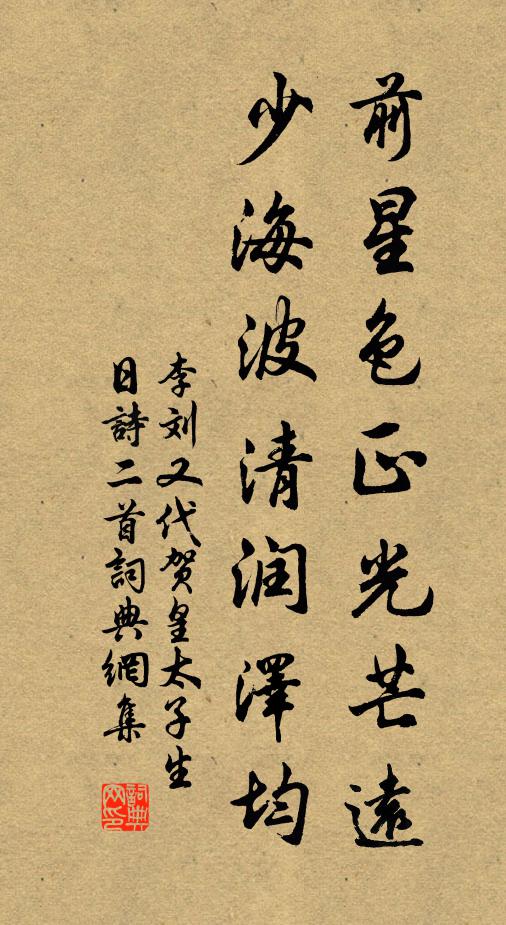 前星色正光芒遠
少海波清润澤均
李刘又代贺皇太子生
日詩二首詞典網集
詞典网印